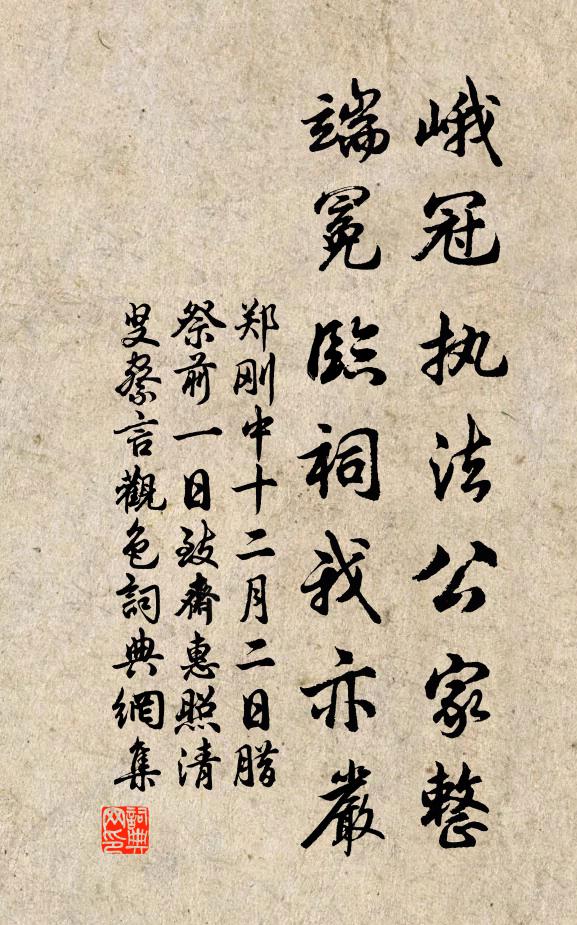 峨冠执法公家整
端冕临祠我亦嚴
郑刚中十二月二日腊
祭前一日致齋惠照清
叟察言觀色詞典網集
詞典网印